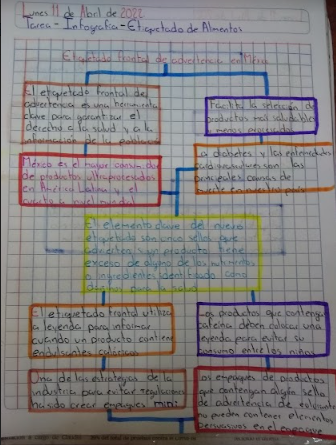 Lunes 11 de Abril de 2022
Tarea - Infografia - Etiquetado de Alimentos
Etiquetado frontal de advertencia en México
El etiquetado frontal de
advertencia es una herramienta
clave para garantizar el
derecho a la salud y a la
información de la población
Facilita la selección de
productos más saludables
o menos procesados
México es el mayor consumidor
de productos ultraprocesados
en América Latina y el
cuarto a nivel mundial
La diabetes y las enfermedades
cardiovasculares son las
principales causas de
muerte en nuestro país
El elemento clave del nuevo
etiquetado son cinco sellos que
advierten si un producto tiene
exceso de alguno de los nutrimentos
o ingredientes identificado como
para la salud
El etiquetado frontal utiliza
la leyenda para informar
cuando un producto contiene
endulcantes calóricos
Los productos que contengan
cafeína deben colocar una
leyenda para evitar su
consumo entre los niños
Una de las estrategias de la
industria para evitar regulaciones
ha sido crear empaques mini
Los empaques de productos
que contengan algún sello
de advertencia de
no pueden contener elementos
persuasivos en el